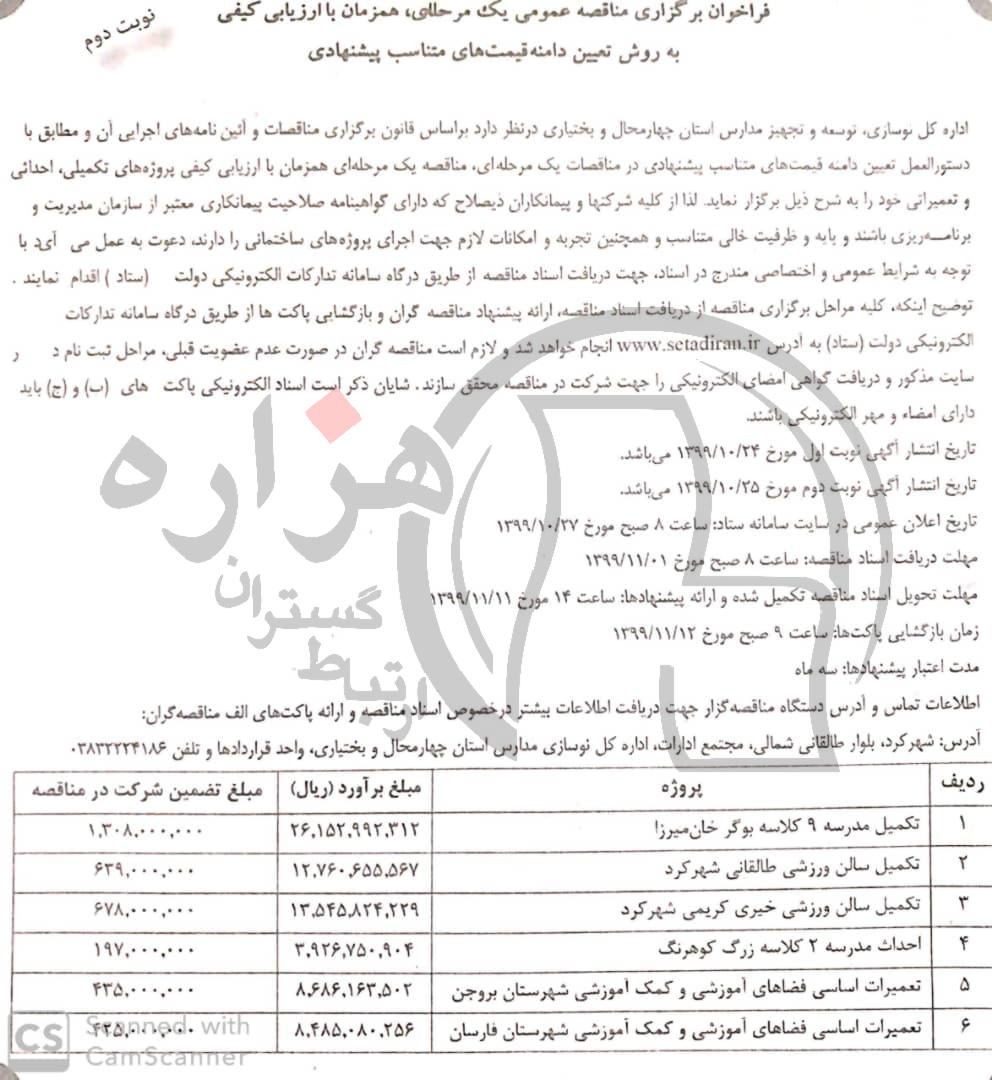 فراخوان برگزاری مناقصه عمومی یک مرحله‌ای، همزمان با ارزیابی کیفی
به روش تعیین دامنه قیمت‌های متناسب پیشنهادی
نوبت دوم
اداره کل نوسازی، توسعه و تجهیز مدارس استان چهارمحال و بختیاری درنظر دارد براساس قانون برگزاری مناقصات و آئین نامه‌های اجرایی آن و مطابق با
دستورالعمل تعیین دامنه قیمت‌های متناسب پیشنهادی در مناقصات یک مرحله‌ای، مناقصه یک مرحله‌ای همزمان با ارزیابی کیفی پروژه‌های تکمیلی، احداثی
و تعمیراتی خود را به شرح ذیل برگزار نماید. لذا از کلیه شرکتها و پیمانکاران ذیصلاح که دارای گواهینامه صلاحیت پیمانکاری معتبر از سازمان مدیریت و
برنامه‌ریزی باشند و پایه و ظرفیت خالی متناسب و همچنین تجربه و امکانات لازم جهت اجرای پروژه‌های ساختمانی را دارند، دعوت به عمل می آید با
توجه به شرایط عمومی و اختصاصی مندرج در اسناد، جهت دریافت اسناد مناقصه از طریق درگاه سامانه تدارکات الکترونیکی دولت (ستاد ) اقدام نمایند .
توضیح اینکه، کلیه مراحل برگزاری مناقصه از دریافت اسناد مناقصه، ارائه پیشنهاد مناقصه گران و بازگشایی پاکت ها از طریق درگاه سامانه تدارکات
الکترونیکی دولت (ستاد) به آدرس www.setadiran.ir انجام خواهد شد و لازم است مناقصه گران در صورت عدم عضویت قبلی، مراحل ثبت نام د ر
سایت مذکور و دریافت گواهی امضای الکترونیکی را جهت شرکت در مناقصه محقق سازند. شایان ذکر است اسناد الکترونیکی پاکت های (ب) و (ج) باید
دارای امضاء و مهر الکترونیکی باشند.
تاریخ انتشار آگهی نوبت اول مورخ ۱۳۹۹/۱۰/۲۴ می‌باشد.
تاریخ انتشار آگهی نوبت دوم مورخ ۱۳۹۹/۱۰/۲۵ می‌باشد.
تاریخ اعلان عمومی در سایت سامانه ستاد: ساعت ۸ صبح مورخ ۱۳۹۹/۱۰/۲۷
مهلت دریافت اسناد مناقصه: ساعت ۸ صبح مورخ ۱۳۹۹/۱۱/۰۱
مهلت تحویل اسناد مناقصه تکمیل شده و ارائه پیشنهادها: ساعت ۱۴ مورخ ۱۳۹۹/۱۱/۱۱
زمان بازگشایی پاکت‌ها: ساعت ۹ صبح مورخ ۱۳۹۹/۱۱/۱۲
مدت اعتبار پیشنهادها: سه ماه
اطلاعات تماس و آدرس دستگاه مناقصه‌گزار جهت دریافت اطلاعات بیشتر درخصوص اسناد مناقصه و ارائه پاکت‌های الف مناقصه‌گران:
آدرس: شهرکرد، بلوار طالقانی شمالی، مجتمع ادارات، اداره کل نوسازی مدارس استان چهارمحال و بختیاری، واحد قراردادها و تلفن ۰۳۸۳۲۲۲۴۱۸۶
ردیف پروژه مبلغ برآورد (ریال) مبلغ تضمین شرکت در مناقصه
۱ تکمیل مدرسه ۹ کلاسه بوگر خان‌میرزا ۲۶,۱۵۲,۹۹۲,۳۱۲ ۱,۳۰۸,۰۰۰,۰۰۰
۲ تکمیل سالن ورزشی طالقانی شهرکرد ۱۲,۷۶۰,۶۵۵,۵۶۷ ۶۳۹,۰۰۰,۰۰۰
۳ تکمیل سالن ورزشی خیری کریمی شهرکرد ۱۳,۵۴۵,۸۲۴,۲۲۹ ۶۷۸,۰۰۰,۰۰۰
۴ احداث مدرسه ۲ کلاسه زرگ کوهرنگ ۳,۹۲۶,۷۵۰,۹۰۴ ۱۹۷,۰۰۰,۰۰۰
۵ تعمیرات اساسی فضاهای آموزشی و کمک آموزشی شهرستان بروجن ۸,۶۸۶,۱۶۳,۵۰۲ ۴۳۵,۰۰۰,۰۰۰
۶ تعمیرات اساسی فضاهای آموزشی و کمک آموزشی شهرستان فارسان ۸,۴۸۵,۰۸۰,۲۵۶ ۴۲۵,۰۰۰,۰۰۰
هزاره
گستران
ارتباط
CS Scanned with
CamScanner